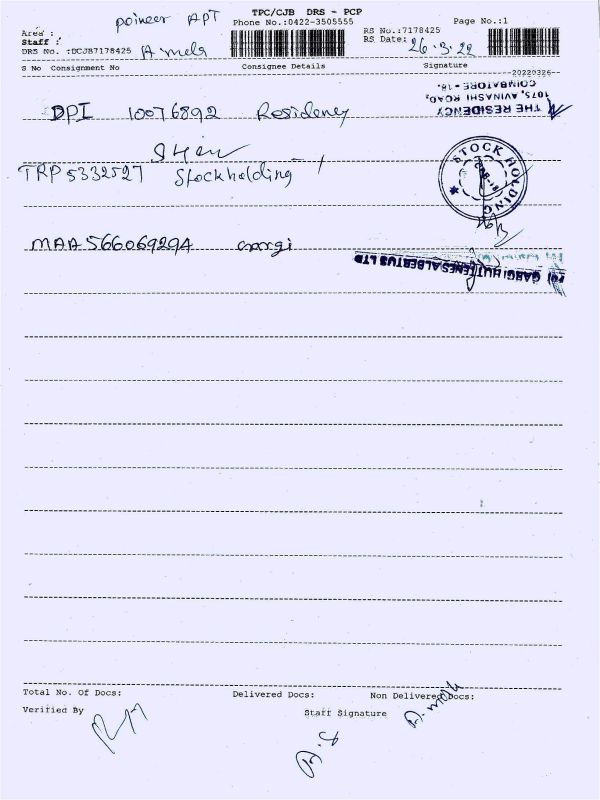 TPC/CJB DRS - PCP
poineer APT
Area :
Phone No.:0422-3505555
Page No.:1
Staff :
RS No.:7178425
RS Date: 26.3.22
DRS No. :DCJB7178425 A mala
S No Consignment No Consignee Details Signature
20220326
THE RESIDENCY
1075, AVINASHI ROAD,
COIMBATORE - 18.
DPI 10076892 Residency
TRP 5332527 Stockholding
STOCK HOLDING
MAA 566069294 Gargi
GARGI HUTTENES ALBERTUS LTD
Total No. Of Docs: Delivered Docs: Non Delivered Docs:
Verified By Staff Signature